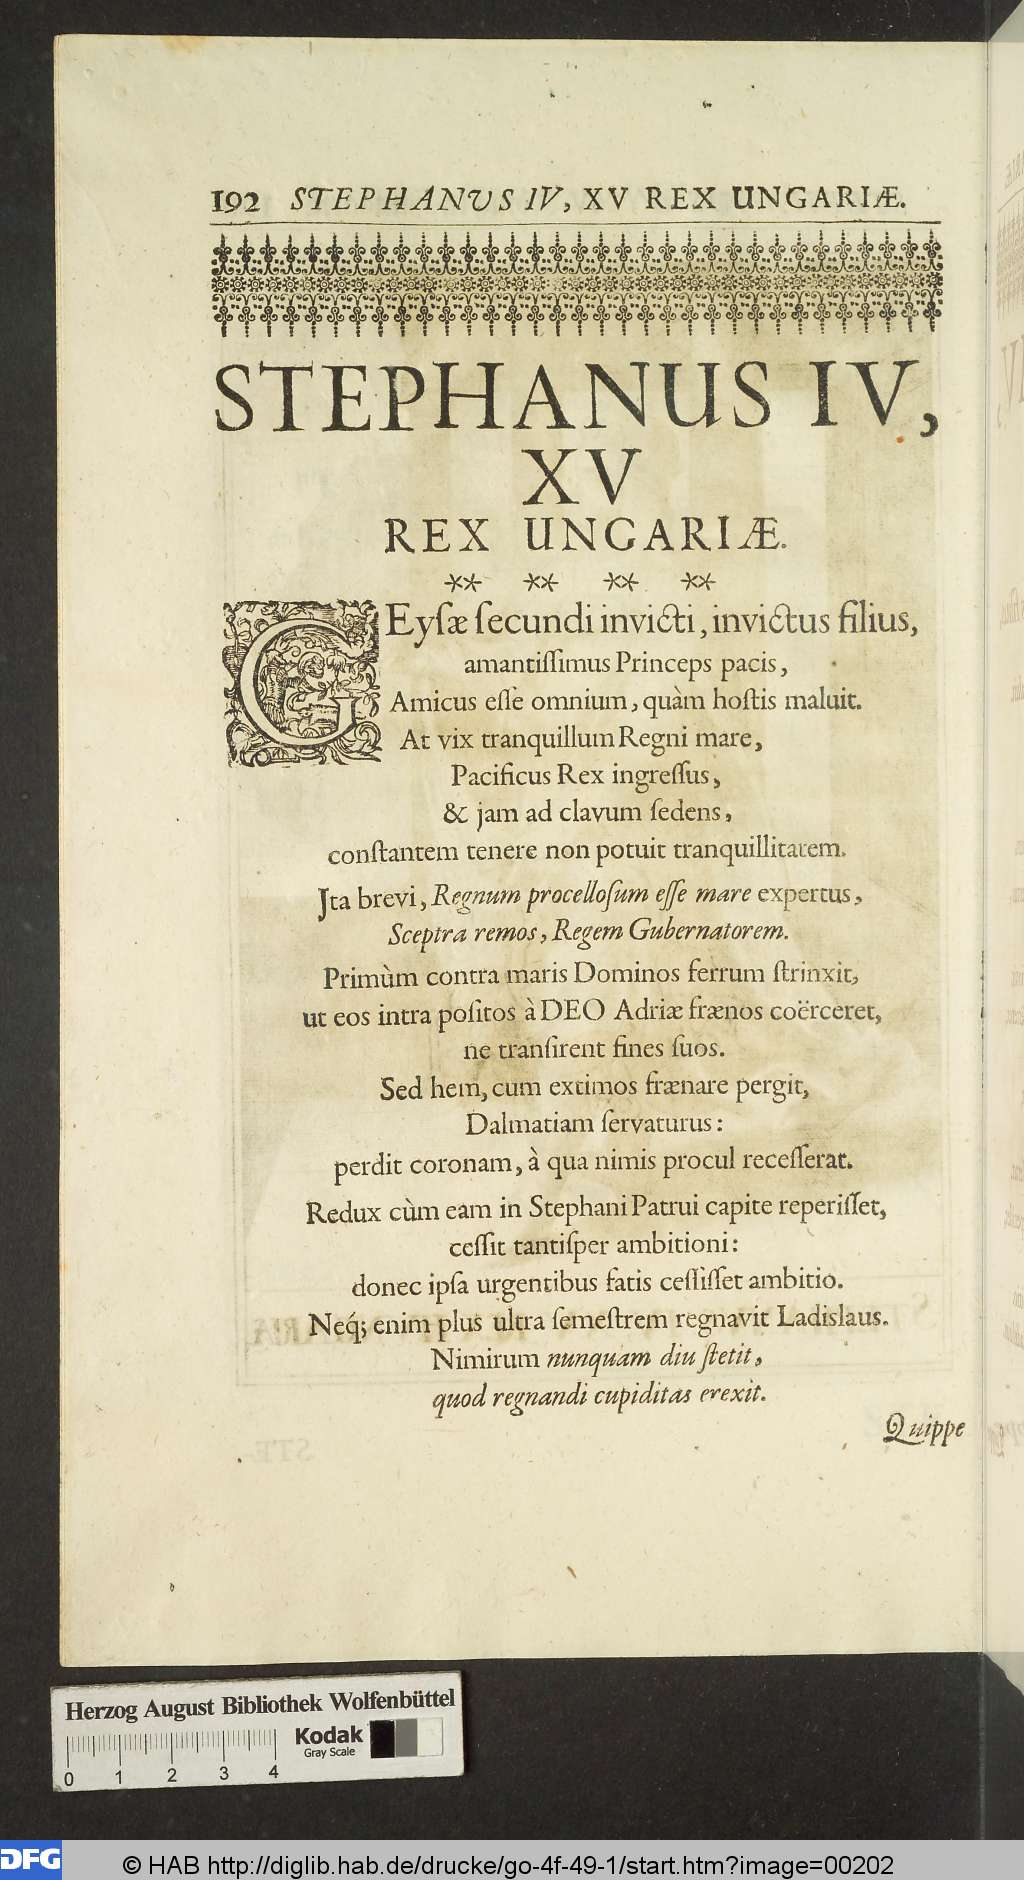 192 STEPHANUS IV, XV REX UNGARIÆ.
STEPHANUS IV,
XV
REX UNGARIÆ.
** ** ** **
GEyſæ ſecundi invicti, invictus filius,
amantiſſimus Princeps pacis,
Amicus eſſe omnium, quàm hoſtis maluit.
At vix tranquillum Regni mare,
Pacificus Rex ingreſſus,
& jam ad clavum ſedens,
conſtantem tenere non potuit tranquillitatem.
Jta brevi, Regnum procelloſum eſſe mare expertus,
Sceptra remos, Regem Gubernatorem.
Primùm contra maris Dominos ferrum ſtrinxit,
ut eos intra poſitos à DEO Adriæ frænos coërceret,
ne tranſirent fines ſuos.
Sed hem, cum extimos frænare pergit,
Dalmatiam ſervaturus:
perdit coronam, à qua nimis procul receſſerat.
Redux cùm eam in Stephani Patrui capite reperiſſet,
ceſſit tantiſper ambitioni:
donec ipſa urgentibus fatis ceſſiſſet ambitio.
Neq́; enim plus ultra ſemeſtrem regnavit Ladislaus.
Nimirum nunquam diu ſtetit,
quod regnandi cupiditas erexit.
Quippe
Herzog August Bibliothek Wolfenbüttel
Kodak
Gray Scale
0 1 2 3 4
DFG
© HAB http://diglib.hab.de/drucke/go-4f-49-1/start.htm?image=00202